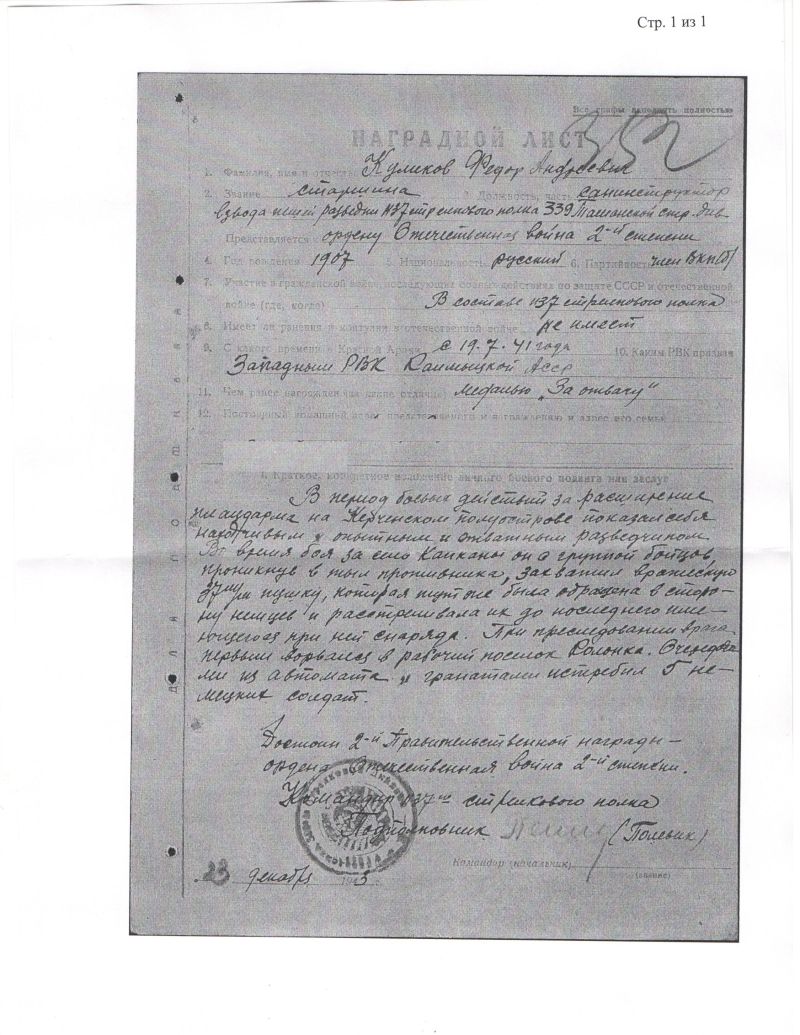 Стр. 1 из 1
Все графы заполнять полностью
352
НАГРАДНОЙ ЛИСТ
1. Фамилия, имя и отчество Куликов Федор Андреевич
2. Звание старшина 3. Должность, часть санинструктор
взвода пешей разведки 1137 стрелкового полка 339 Таманской стр. див-
Представляется к ордену Отечественная война 2-й степени
4. Год рождения 1907 5. Национальность русский 6. Партийность член ВКП(б)
7. Участие в гражданской войне, последующих боевых действиях по защите СССР и отечественной
войне (где, когда) В составе 1137 стрелкового полка
8. Имеет ли ранения и контузии в отечественной войне не имеет
9. С какого времени в Красной Армии с 19.7.41 года 10. Каким РВК призван
Западным РВК Калмыцкой Асср
11. Чем ранее награжден (за какие отличия) медалью „За отвагу"
12. Постоянный домашний адрес представляемого к награждению и адрес его семьи
I. Краткое, конкретное изложение личного боевого подвига или заслуг
В период боевых действий за расширение
плацдарма на Керченском полуострове показал себя
находчивым и опытным и отважным разведчиком.
Во время боя за село Капканы он с группой бойцов,
проникнув в тыл противника, захватил вражескую
37 м/м пушку, которая тут же была обращена в сторо-
ну немцев и расстреливала их до последнего име-
ющегося при ней снаряда. При преследовании врага
первым ворвался в рабочий поселок Колонка. Очередя-
ми из автомата и гранатами истребил 5 не-
мецких солдат.
Достоин 2-й Правительственной награды –
ордена Отечественная война 2-й степени.
Командир 1137го стрелкового полка
Подполковник (Полевик)
Командир (начальник)
(звание)
23 декабря 1943
для подшивки